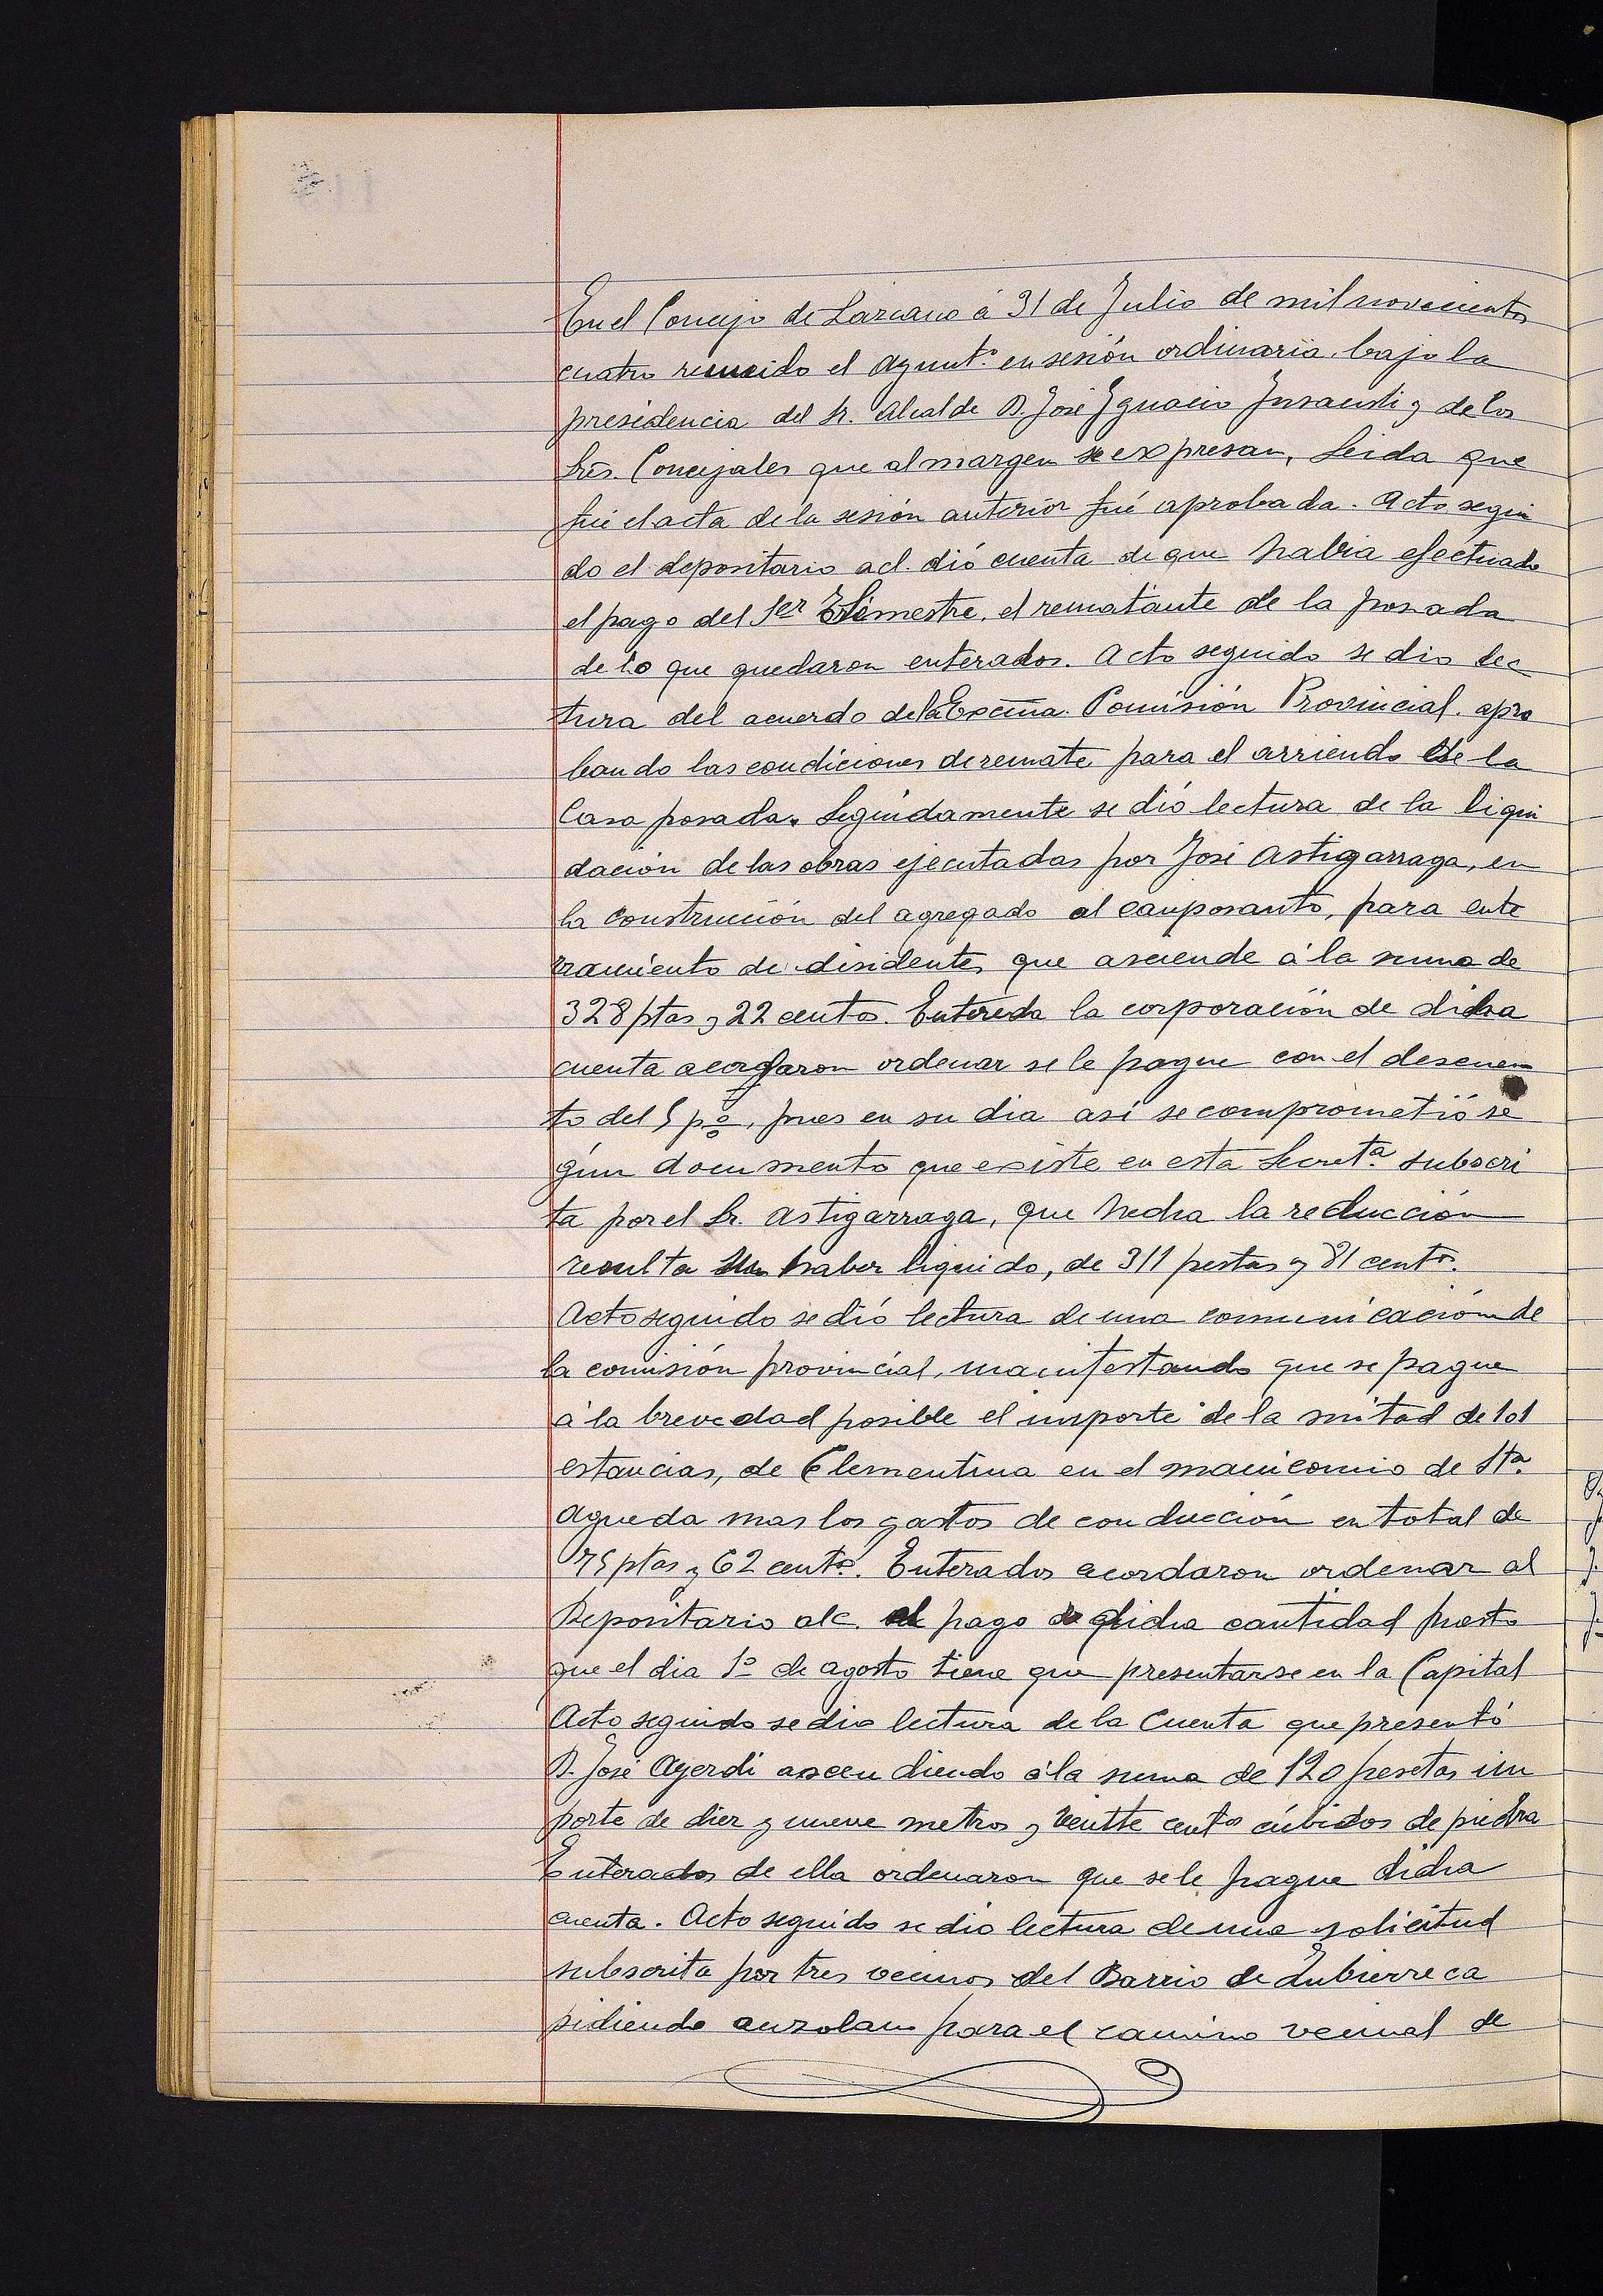 En el Concejo de Lazcano á 31 de Julio de mil novecientos
cuatro reunido el Ayunt.º en sesión ordinaria bajo la
presidencia del Sr. Alcalde D. José Ygnacio Insausti y de los
Sres. Concejales que al margen se expresan, Leida que
fué el acta de la sesión anterior fué aprobada. Acto segui
do el depositario acl. dió cuenta de que habia efectuado
el pago del 1er Trimestre, el rematante de la posada
de lo que quedaron enterados. Acto seguido se dio lec
tura del acuerdo de la Excma. Comisión Provincial. apro
bando las condiciones de remate para el arriendo de la
Casa posada. Seguidamente se dió lectura de la liqui
dación de las obras ejecutadas por José Astigarraga, en
la construcción del agregado al camposanto, para ente
rramiento de disidentes que asciende á la suma de
328 ptas y 22 cents. Enterada la corporación de dicha
cuenta acordaron ordenar se le pague con el descuen
to del 5 p%, pues en su dia así se comprometió se
gún documento que existe en esta Secret.ª subscri
ta por el Sr. Astigarraga, que hecha la reducción
resulta un haber liquido, de 311 pestas y 81 cents.
Acto seguido se dió lectura de una comunicación de
la comisión provincial, manifestando que se pague
á la brevedad posible el importe de la mitad de 101
estancias, de Clementina en el manicomio de Sta.
Agueda mas los gastos de conducción en total de
75 ptas y 62 cents. Enterados acordaron ordenar al
Depositario alc. el pago de dicha cantidad puesto
que el dia 1º de agosto tiene que presentarse en la Capital
Acto seguido se dio lectura de la Cuenta que presentó
D. José Ayerdi ascendiendo á la suma de 120 pesetas im
porte de diez y nueve metros y veinte cents cúbicos de piedra
Enterados de ella ordenaron que se le pague dicha
cuenta. Acto seguido se dio lectura de una solicitud
subscrita por tres vecinos del Barrio de Zubierreca
pidiendo auzolan para el camino vecinal de